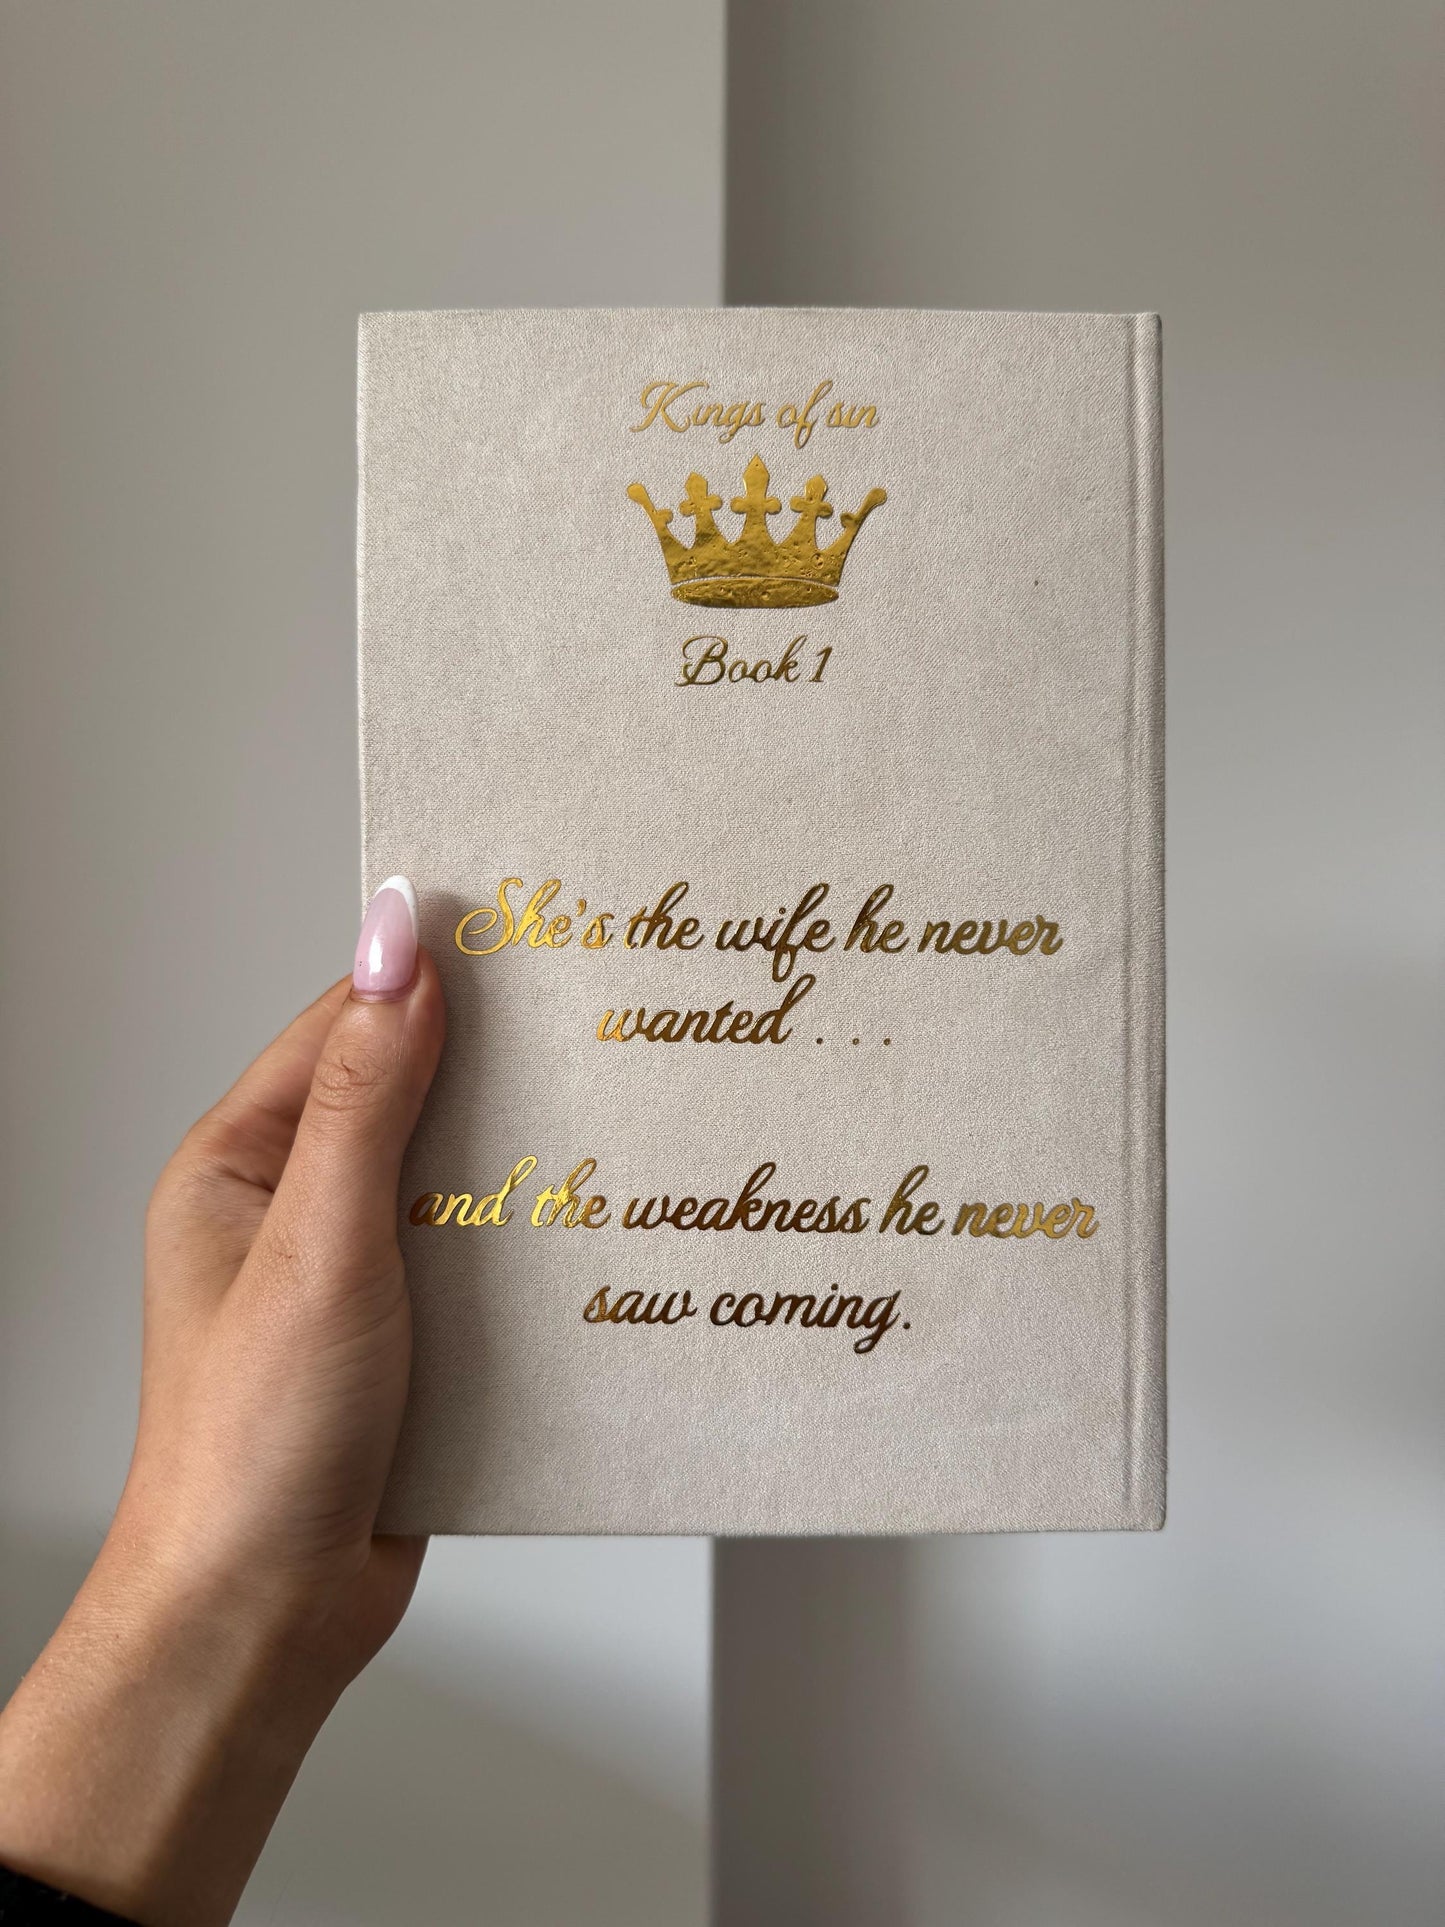 Kings of sin
Book 1
She's the wife he never
wanted . . .
and the weakness he never
saw coming.